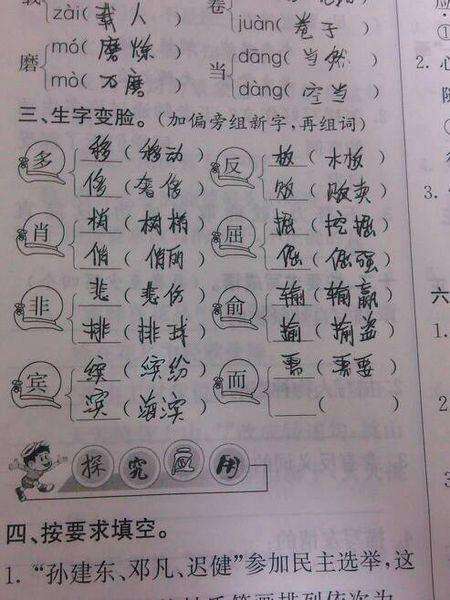 zài( 载人 ) juàn( 卷子 )
磨 mó( 磨炼 ) 当 dāng( 当然 )
mò( 磨 ) dàng( 空当 )
三、生字变脸。(加偏旁组新字,再组词)
多 移 ( 移动 ) 反 板 ( 板 )
侈 ( 奢侈 ) 贩 ( 贩卖 )
肖 梢 ( 树梢 ) 屈 掘 ( 挖掘 )
俏 ( 俏丽 ) 倔 ( 倔强 )
非 悲 ( 悲伤 ) 俞 输 ( 输赢 )
排 ( 排球 ) ( 盗 )
宾 缤 ( 缤纷 ) 而 需 ( 需要 )
滨 ( 海滨 ) ( )
探究应用
四、按要求填空。
1.“孙建东、邓凡、迟健”参加民主选举,这
2. 心
3.
六
1.
2